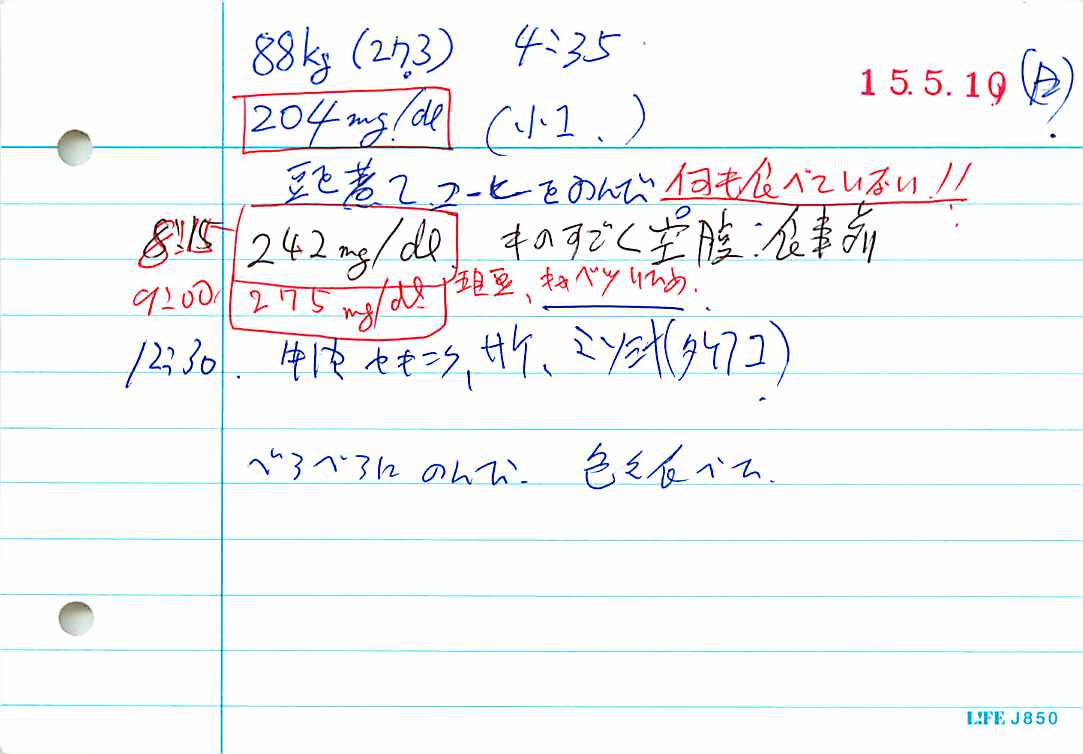 88kg (27.3) 4:35
15.5.10
204mg/dl (小エ.)
豆を煮て、コーヒーをのんで 何も食べていない!!
8:15 242mg/dl ものすごく空腹:食事前
9:00 275mg/dl 豆、キャベツ
12:30. サケ、ミソ汁(タケノコ)
べろべろに のんで. 色々食べて.
LIFE J850